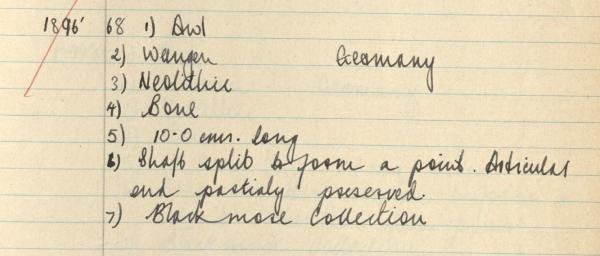 1896 68 1) Awl
2) Wangen Germany
3) Neolithic
4) Bone
5) 10.0 cms. long
6) Shaft split to form a point. Articular
end partialy preserved.
7) Blackmore Collection